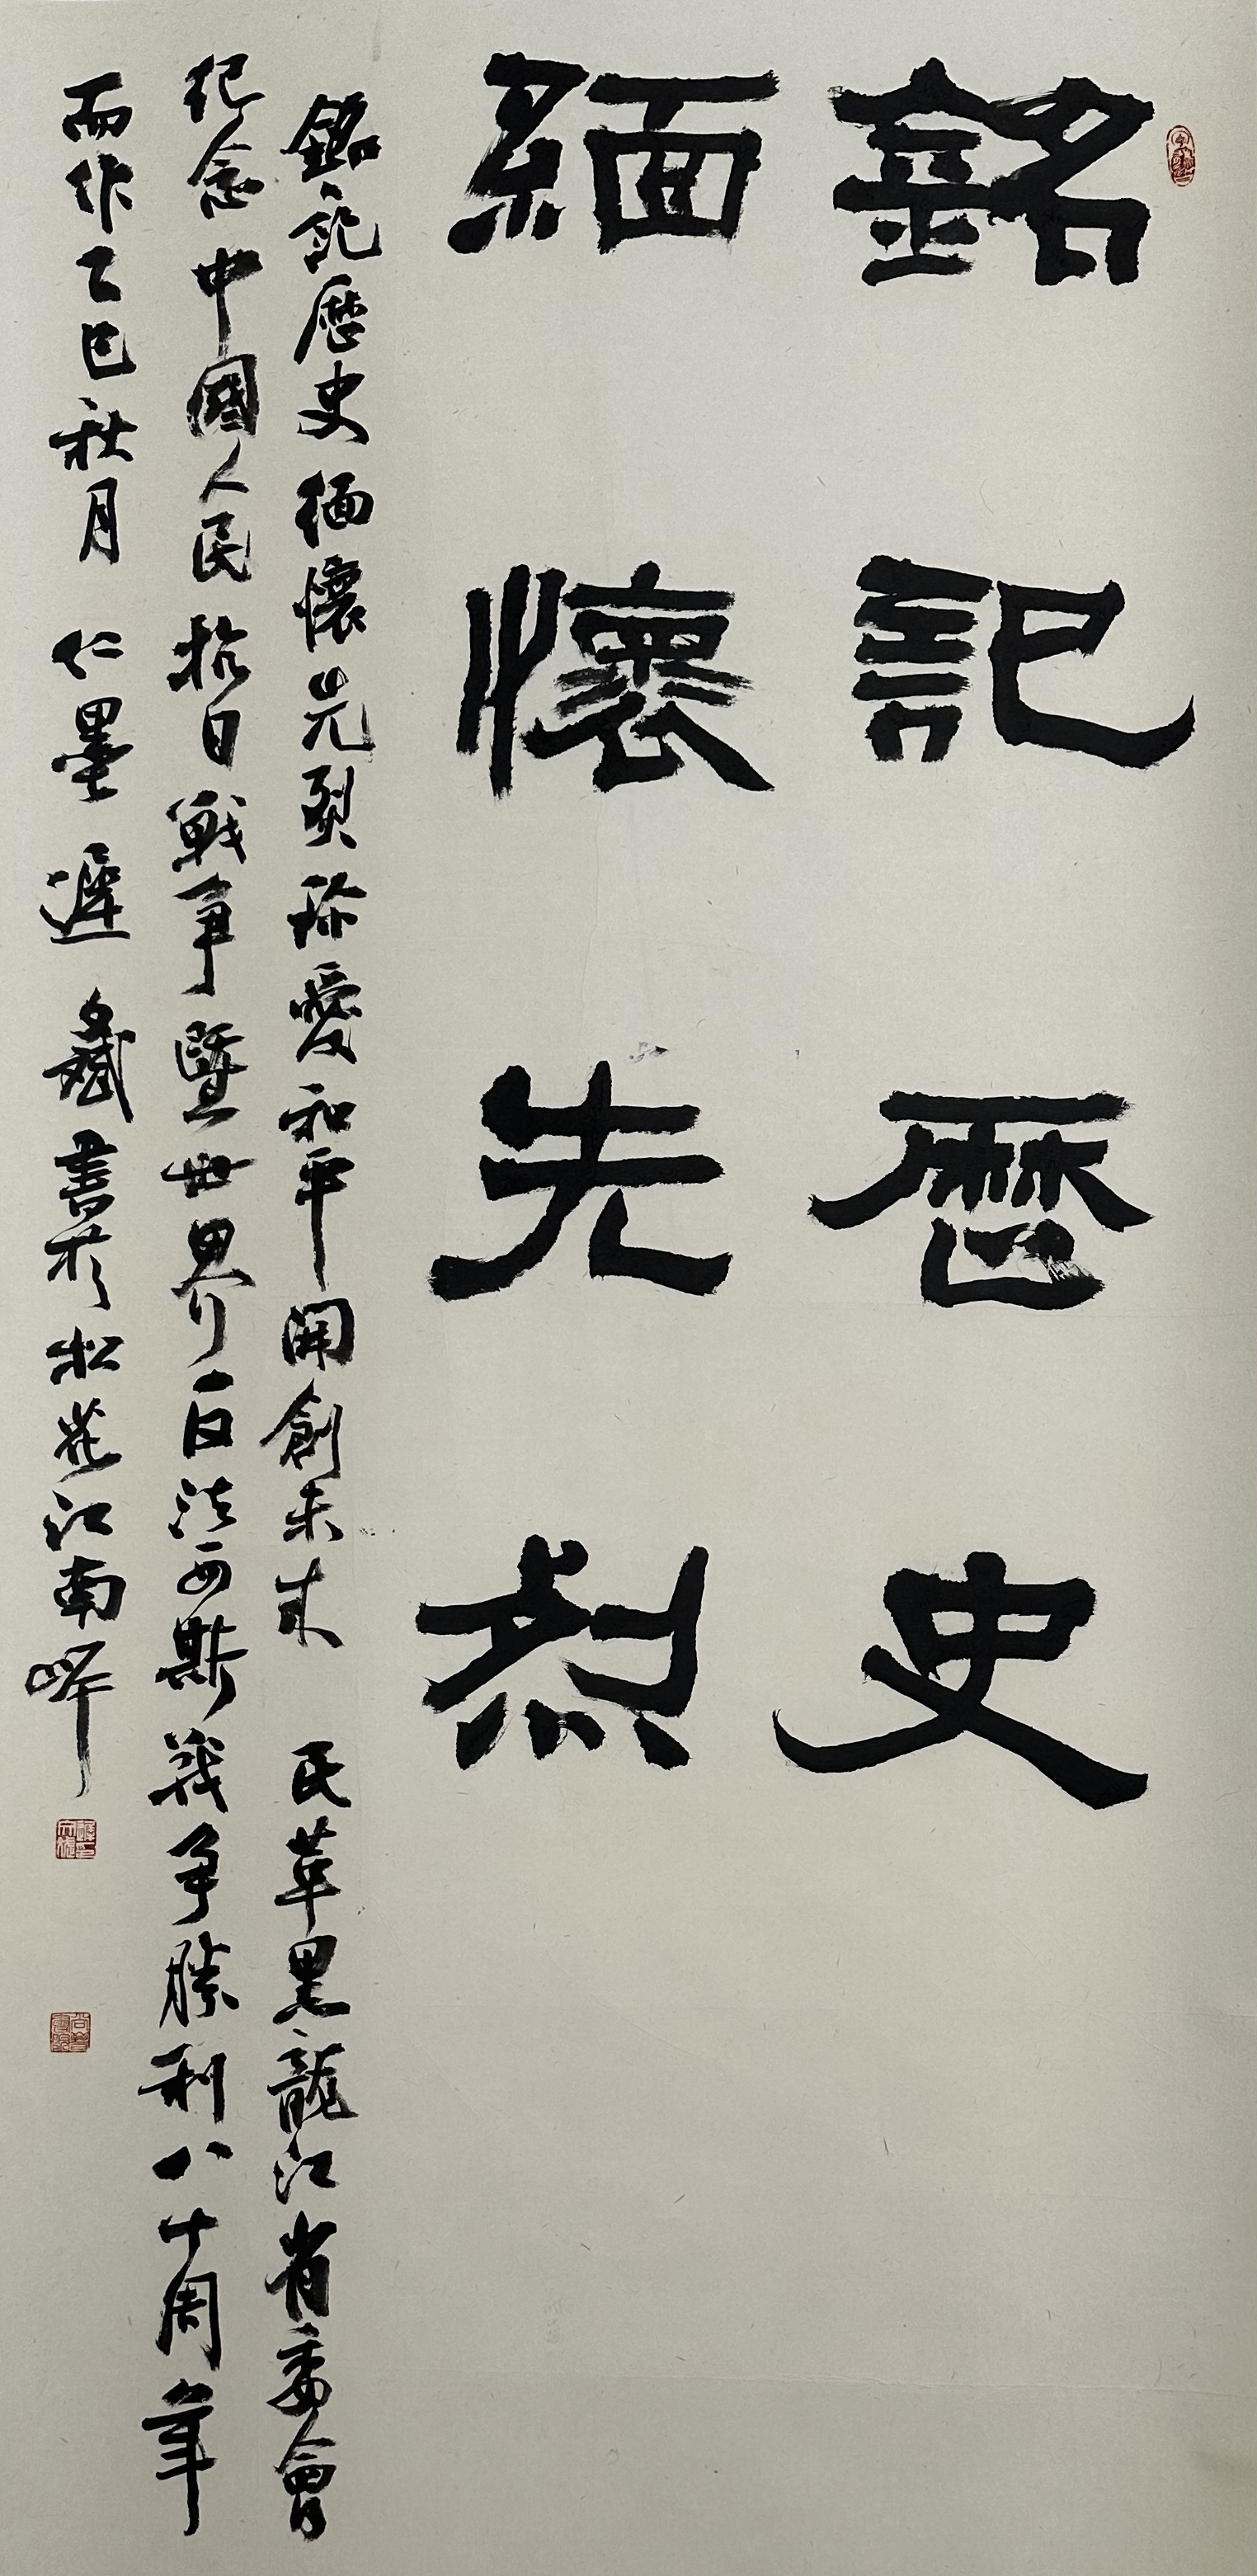 銘記歷史
緬懷先烈
銘記歷史緬懷先烈珍愛和平開創未來 民革黑龍江省委會
纪念中國人民抗日戰争暨世界反法西斯戰争勝利八十周年
而作乙巳秋月 仁墨遲 書於松花江南岸